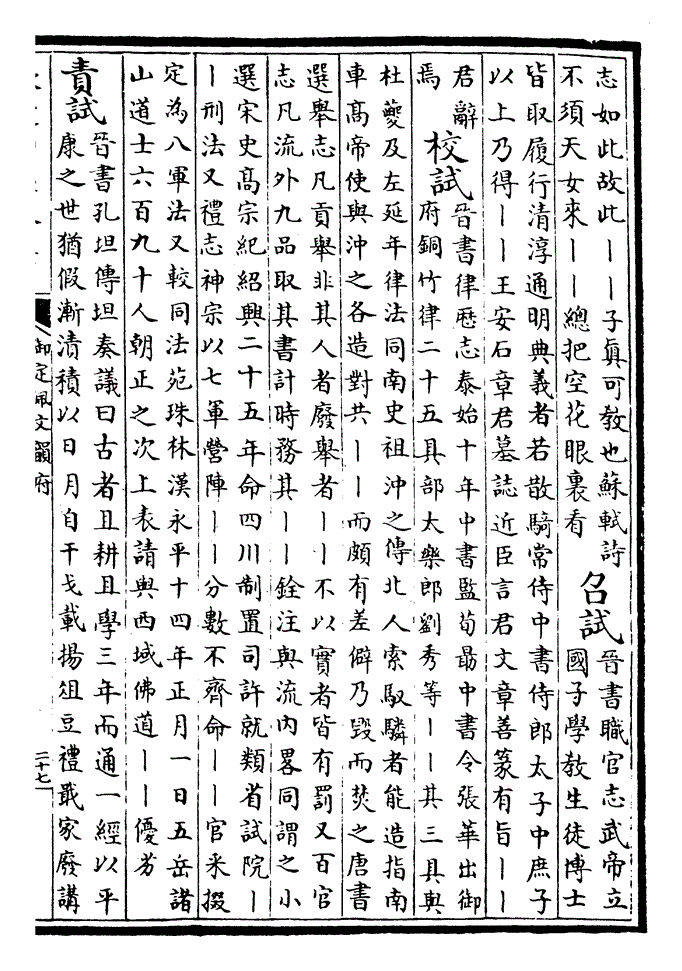 志如此故此｜｜子真可教也蘇軾詩
不須天女來｜｜總把空花眼裏看
召試
晉書職官志武帝立
國子學教生徒博士
皆取履行清淳通明典義者若散騎常侍中書侍郎太子中庶子
以上乃得｜｜王安石章君墓誌近臣言君文章善篆有旨｜｜
君辭
焉
校試
晉書律歴志泰始十年中書監荀勗中書令張華出御
府銅竹律二十五具部太樂郎劉秀等｜｜其三具與
杜夔及左延年律法同南史祖沖之傳北人索馭驎者能造指南
車髙帝使與沖之各造對共｜｜而頗有差僻乃毁而焚之唐書
選舉志凡貢舉非其人者廢舉者｜｜不以實者皆有罰又百官
志凡流外九品取其書計時務其｜｜銓注與流内畧同謂之小
選宋史髙宗紀紹興二十五年命四川制置司許就類省試院｜
｜刑法又禮志神宗以七軍營陣｜｜分數不齊命｜｜官采掇
定為八軍法又較同法苑珠林漢永平十四年正月一日五岳諸
山道士六百九十人朝正之次上表請與西域佛道｜｜優劣
責試
晉書孔坦傳坦奏議曰古者且耕且學三年而通一經以平
康之世猶假漸漬積以日月自干戈載揚俎豆禮戢家廢講
御定佩文韻府
二十七